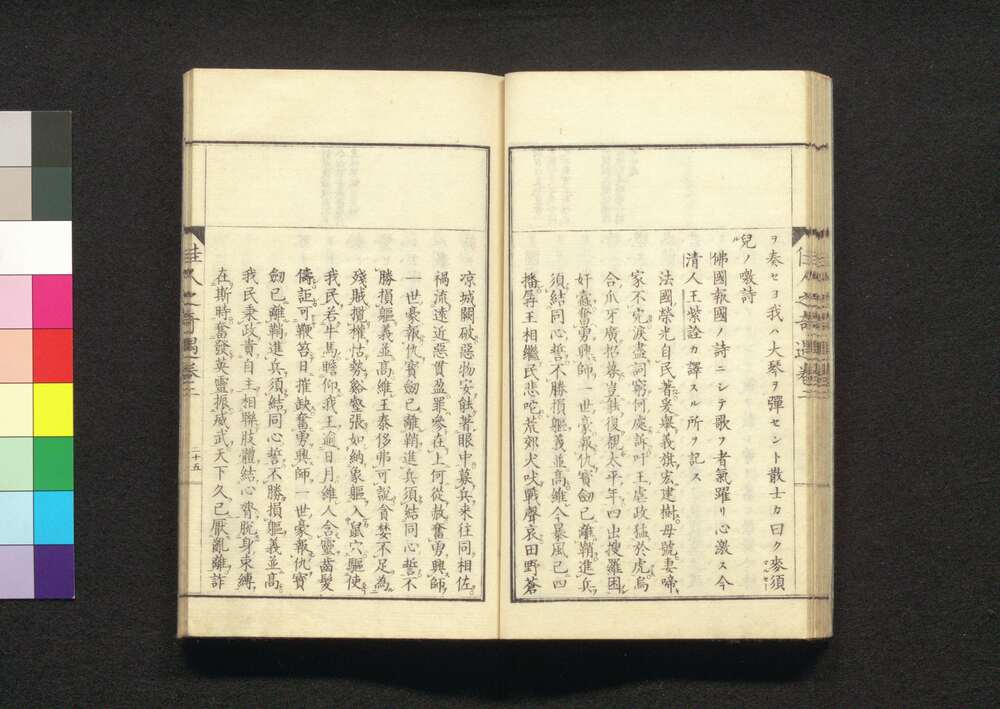 ヲ奏セヨ我ハ大琴ヲ彈セント散士カ曰ク麥須
マルセー
兒ノ噭詩
ル
佛國報國ノ詩ニシテ歌フ者氣躍リ心激ス今
清人王紫詮カ譯スル所ヲ記ス
法國榮光自民著爰舉義旗宏建樹母號妻啼
家不完淚盡詞窮何處訴吁王虐政猛於虎烏
合爪牙廣招募豈能復覩太平年四出搜羅困
奸蠹奮勇興師一世豪報仇寶劒已離鞘進兵
須結同心誓不勝損軀義並高維今暴風已四
播孱王相繼民悲咤荒郊犬吠戰聲哀田野蒼
涼城闕破惡物安能著眼中募兵来往同相佐
禍流遠近惡貫盈罪參在上何從赦奮勇興師
一世豪報仇寶劒已離鞘進兵須結同心誓不
勝損軀義並高維王泰侈弗可説貪婪不足為
殘賊攬權怙勢谿壑張如納象軀入鼠穴驅使
我民若牛馬瞻仰我王逾日月維人含靈齒髮
儔詎可鞭笞日摧缺奮勇興師一世豪報仇寶
劒已離鞘進兵須結同心誓不勝損軀義並高
我民秉政貴自主相聯肢體結心膂脱身束縛
在斯時奮發英靈振威武天下久已厭亂離詐
佳人之奇遇
卷二
二十五